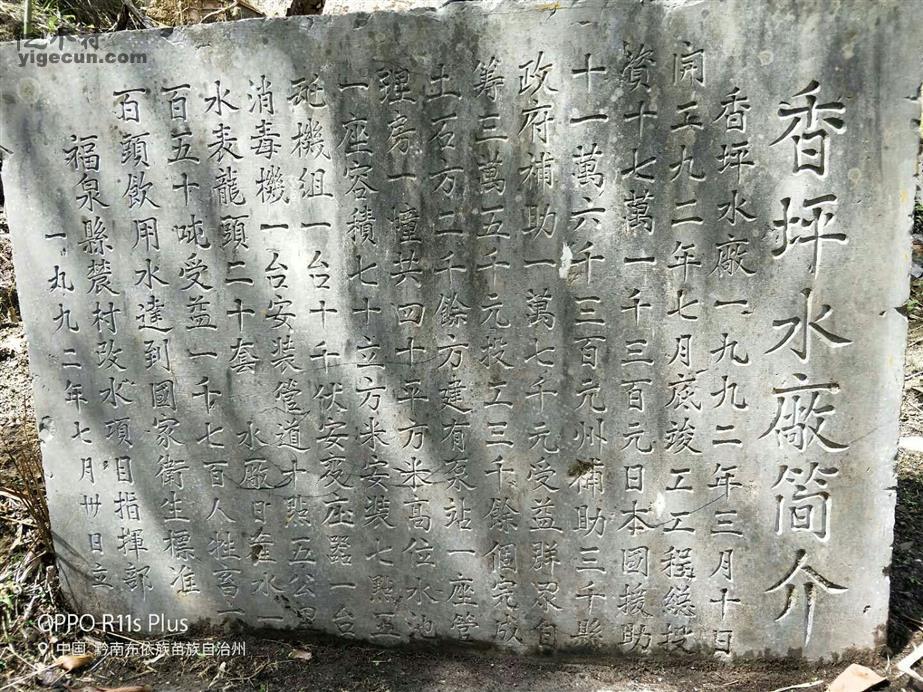 香坪水廠简介
香坪水廠一九九二年三月十日
開工九二年七月底竣工工程總投
資十七萬一千三百元日本國援助
十一萬六千三百元州補助三千縣
政府補助一萬七千元受益群眾自
籌三萬五千元投工三千餘個完成
土石方二千餘方建有泵站一座管
理房一幢共四十平方米高位水池
一座容積七十立方米安裝七點五
瓩機組一台十千伏安变压器一台
消毒機一台安裝管道十點五公里
水表龍頭二十套 水廠日產水一
百五十吨受益一千七百人牲畜一
百頭飲用水達到國家衛生標准
福泉縣農村改水項目指揮部
一九九二年七月卅日立
yigecun.com
OPPO R11s Plus
中国·黔南布依族苗族自治州